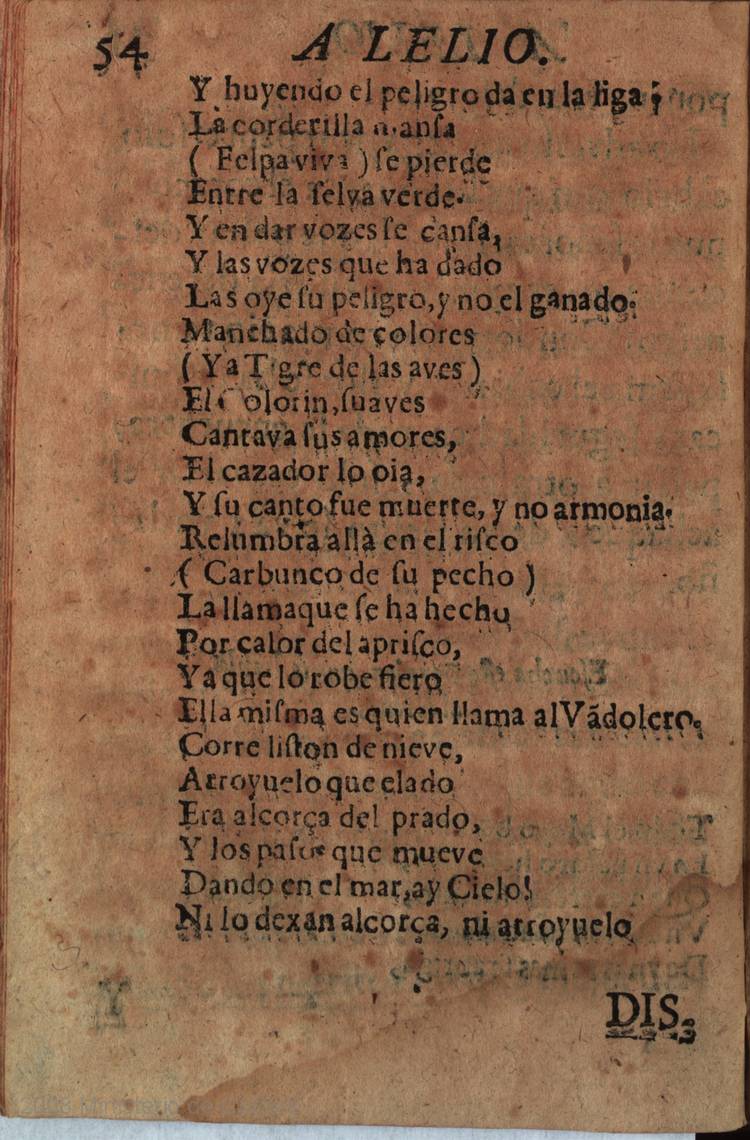 54 A LELIO.
Y huyendo el peligro da en la liga;
La corderilla mansa
( Felpa viva ) se pierde
Entre la selva verde.
Y en dar vozes se cansa,
Y las vozes que ha dado
Las oye su peligro, y no el ganado.
Manchado de colores
( Ya Tigre de las aves )
El Colorin, suaves
Cantava sus amores,
El cazador lo oia,
Y su canto fue muerte, y no armonia.
Relumbra allà en el risco
( Carbunco de su pecho )
La llama que se ha hecho
Por calor del aprisco,
Ya que lo robe fiero
Ella misma es quien llama al Vãdolero.
Corre liston de nieve,
Arroyuelo que elado
Era alcorça del prado,
Y los pasos que mueve
Dando en el mar, ay Cielo!
Ni lo dexan alcorça, ni arroyuelo
DIS-